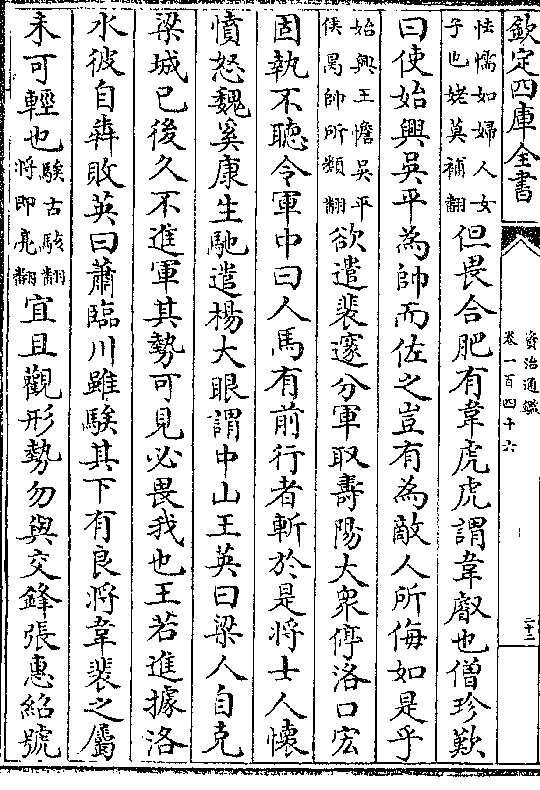 欽定四庫全書
資治通鑑
卷一百四十六
二十三
怯懦如婦人女
子也姥莫補翻
但畏合肥有韋虎虎謂韋叡也僧珍歎
曰使始興吳平為帥而佐之豈有為敵人所侮如是乎
始興王憺吳平
侯昺帥所類翻
欲遣裴邃分軍取壽陽大衆停洛口宏
固執不聽令軍中曰人馬有前行者斬於是將士人懐
憤怒魏奚康生馳遣楊大眼謂中山王英曰梁人自克
梁城已後久不進軍其勢可見必畏我也王若進據洛
水彼自犇敗英曰蕭臨川雖騃其下有良將韋裴之屬
未可輕也
騃古駭翻
將即亮翻
宜且觀形勢勿與交鋒張惠紹號